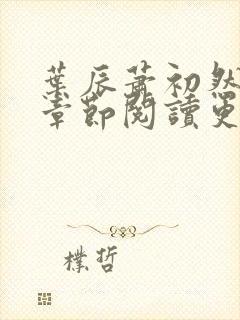 葉辰蕭初然
章節閱讀更
樸哲